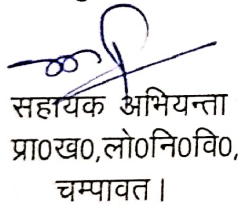 सहायक अभियन्ता
प्रा०ख०,लो०नि०वि०,
चम्पावत।